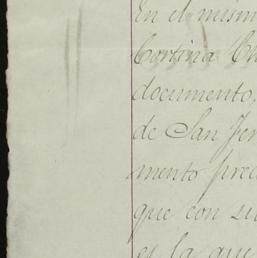 En el mism
Cortina Ch
documento,
de San Fer
mento prec
que con su
es la que